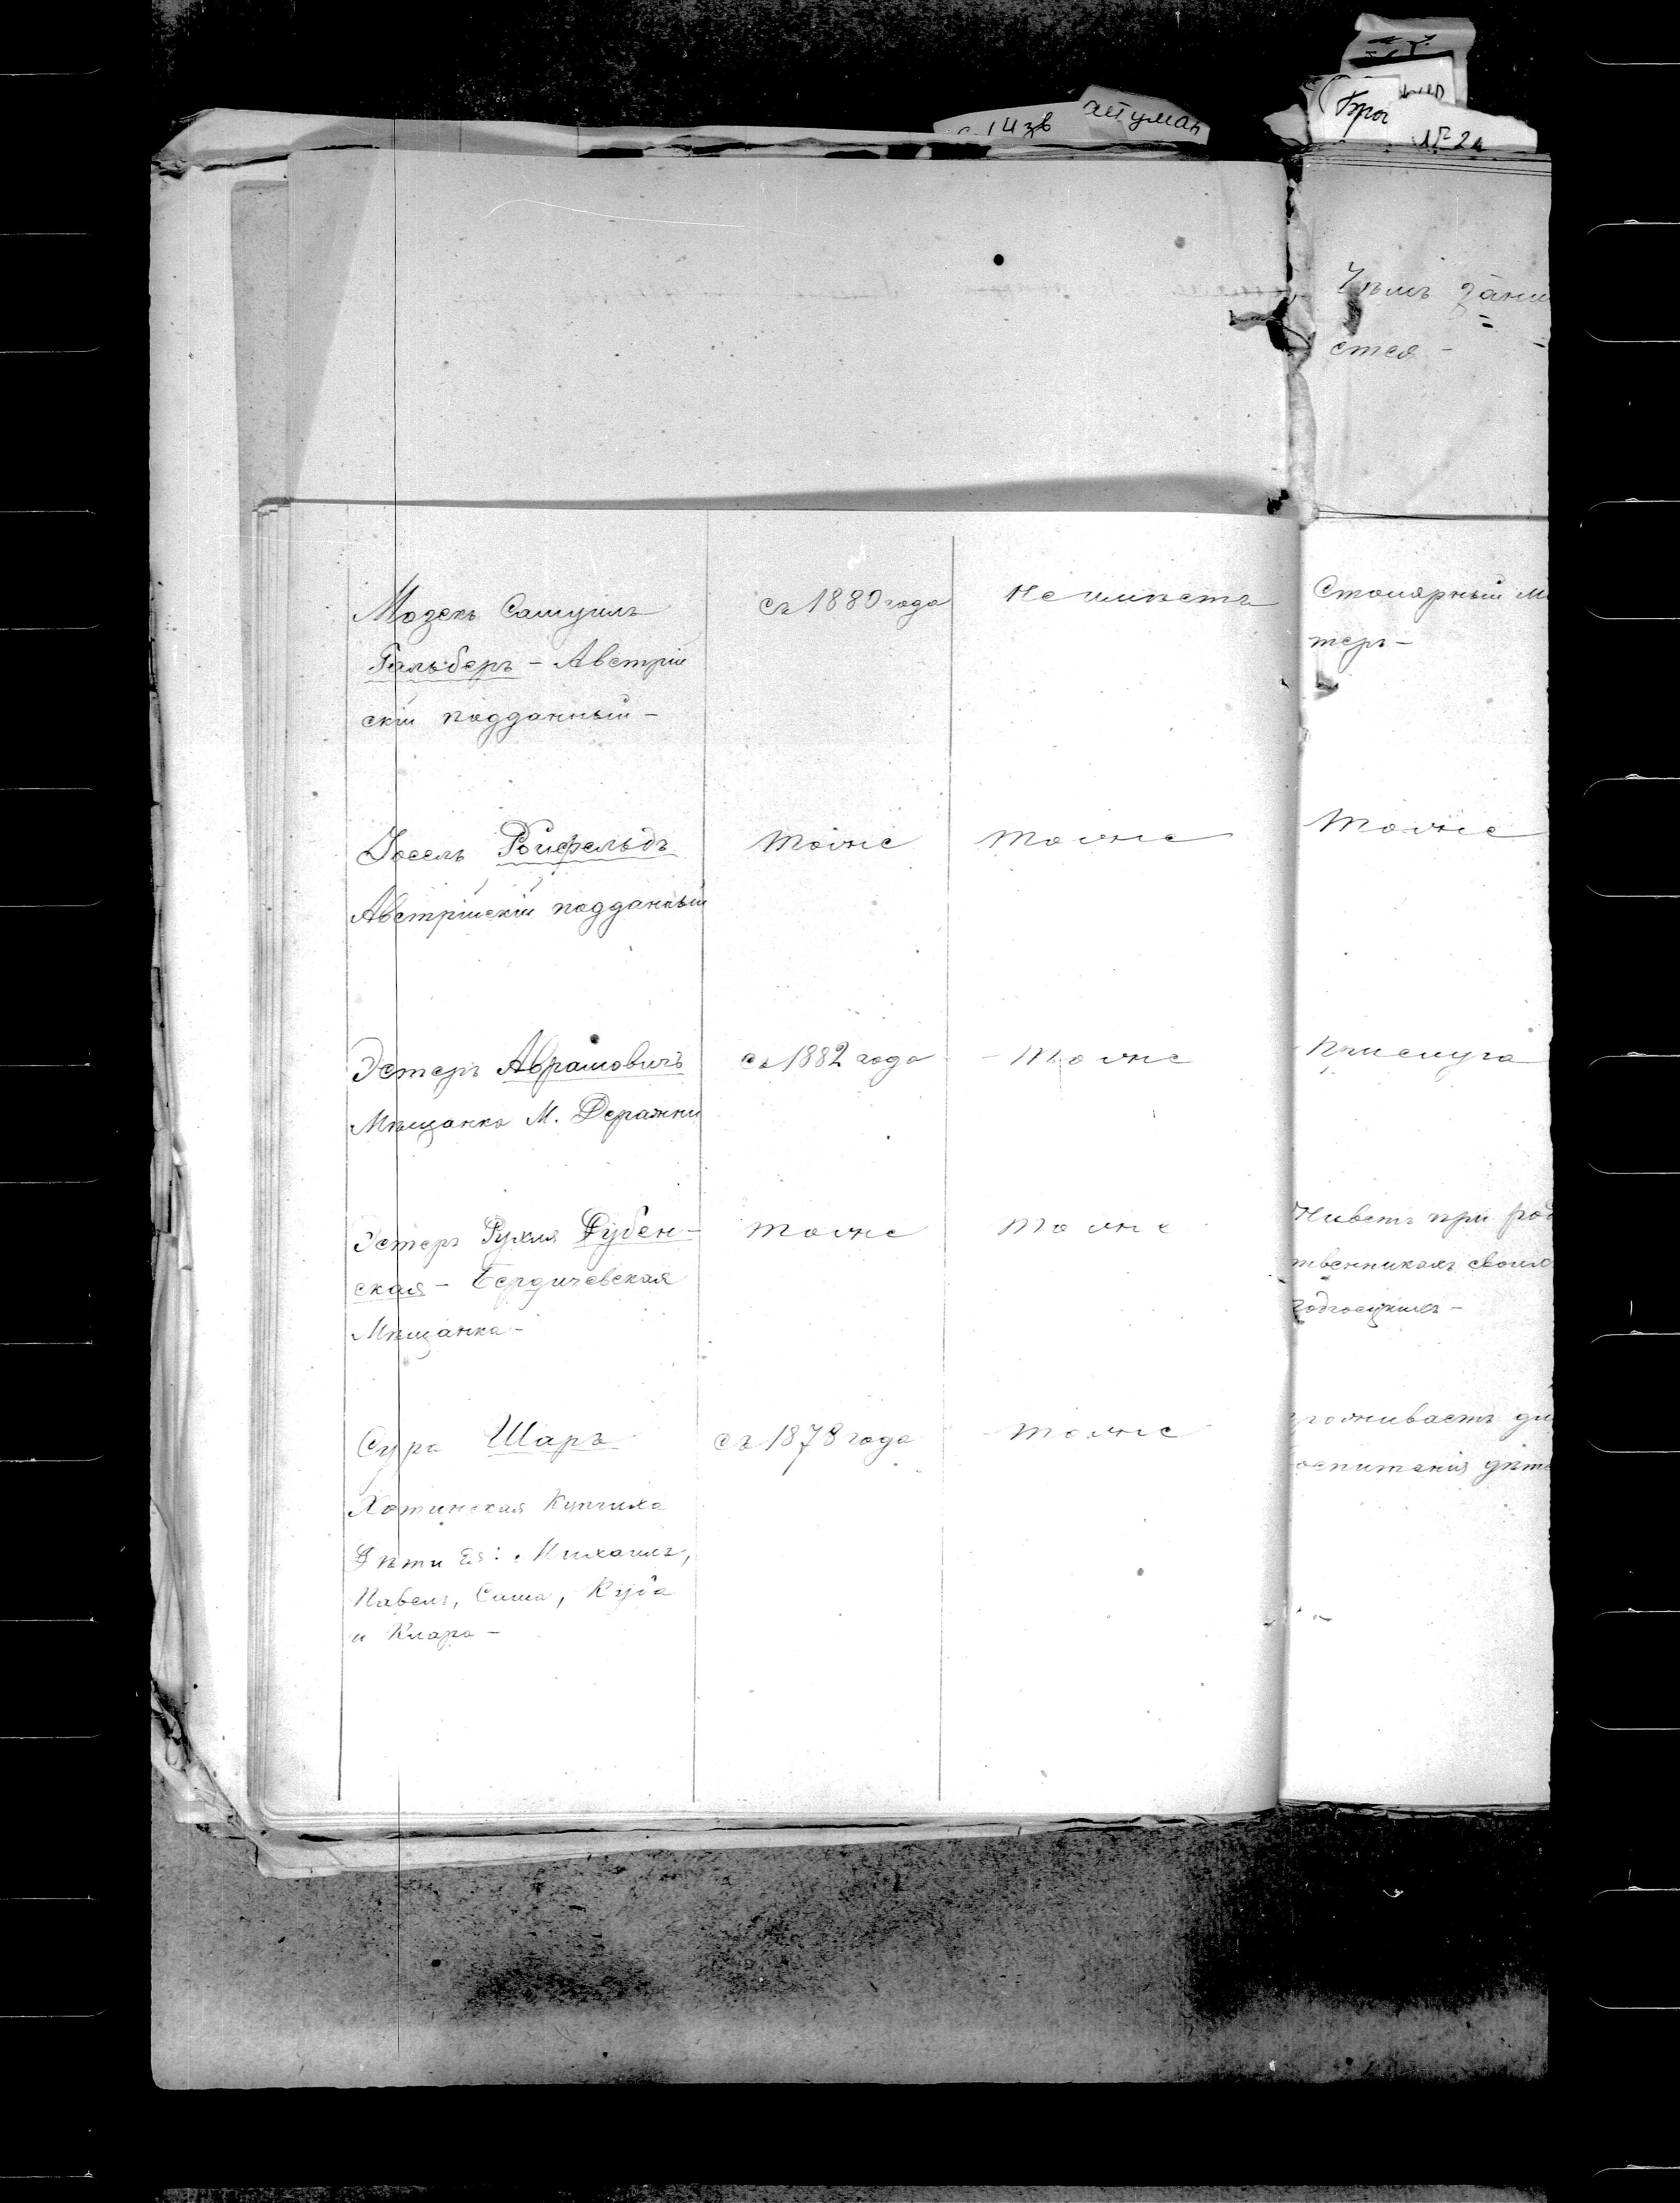 атуман
Бро
Чѣмъ зани
ется -
Мозекъ Самуилъ
Гальберъ - Австрій
скій подданный -
съ 1880 года
Не имѣетъ
Столярный м
теръ -
Іосель Ройфельдъ
Австрійскій подданный
тоже
тоже
тоже
Эстеръ Аврамовичъ
Мѣщанка М. Деражни
съ 1882 года
- тоже
Прислуга
Эстеръ Рухля Дубен-
ская - Бердичевская
Мѣщанка -
тоже
тоже
Живетъ при род
твенникахъ своихъ
Сура Шаръ
Хотинская Купчиха
Дѣти Ея: Михаилъ,
Павелъ, Саша, Куба
и Клара -
съ 1878 года
- тоже
роживаетъ дл
оспитанія дѣте